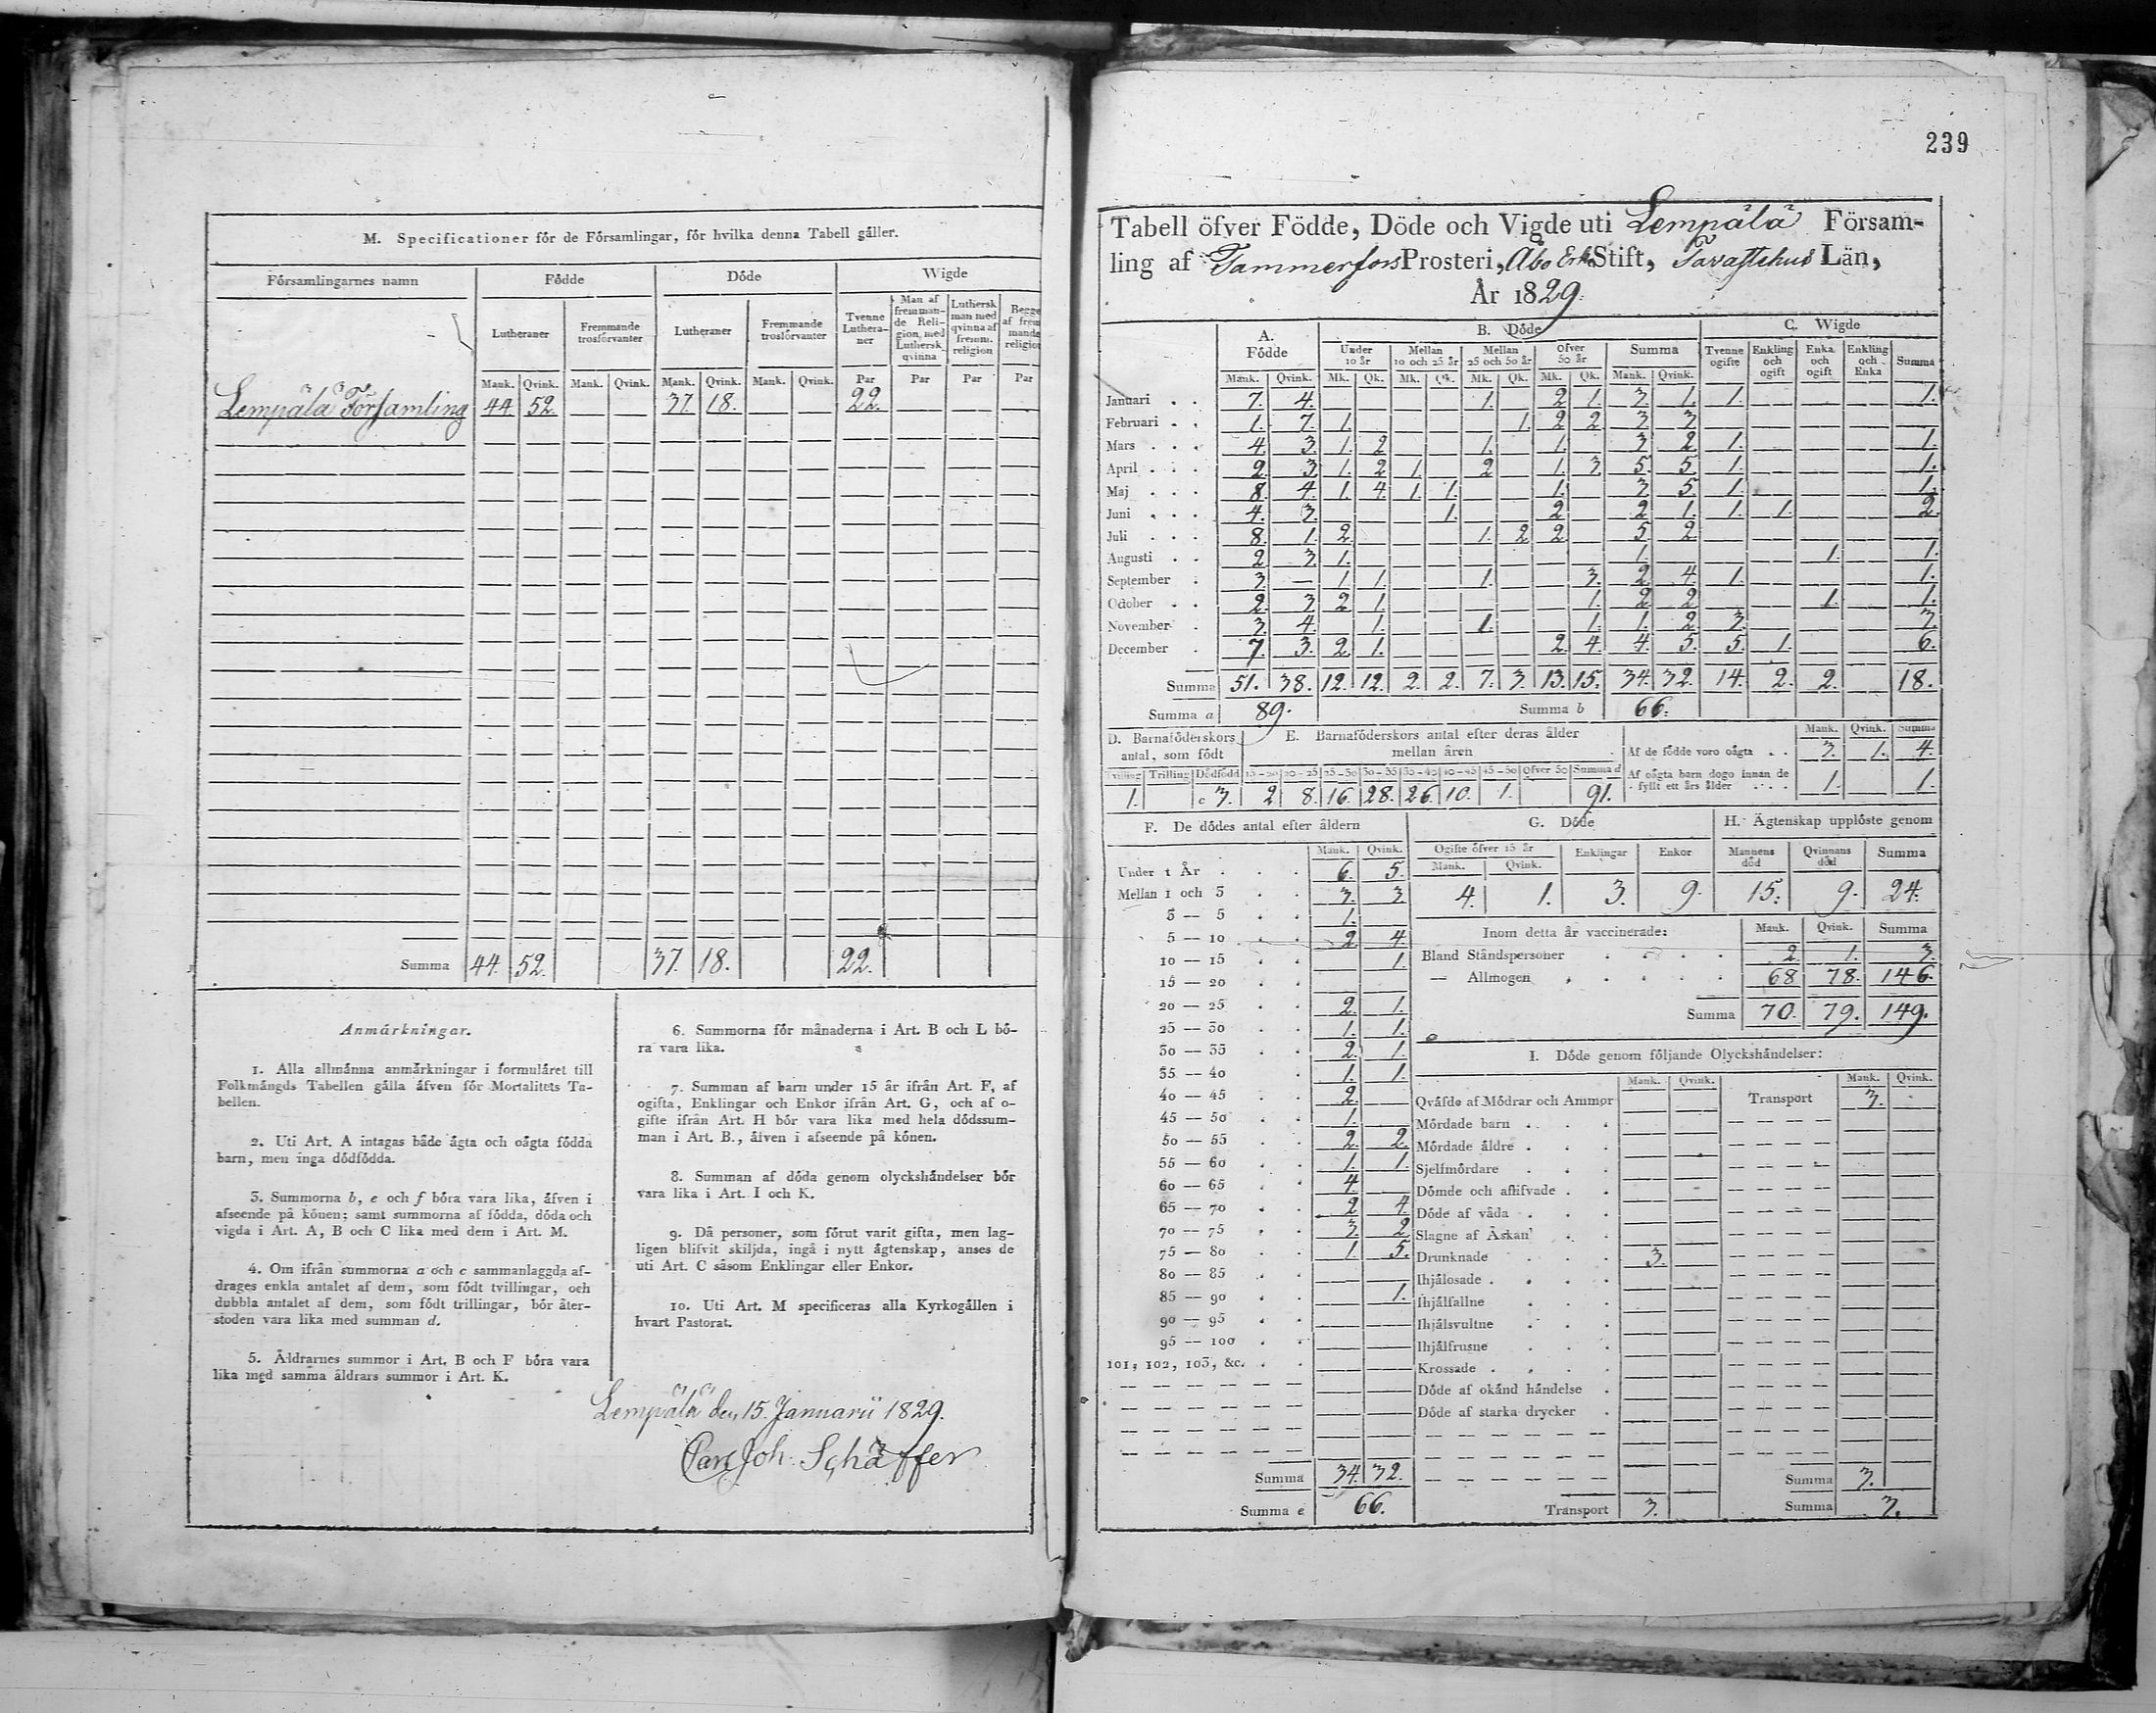 M. Specificationer för de Församlingar, för hvilka denna Tabell gäller.
Församlingarnes namn | Födde | Döde | Wigde
Lutheraner | Fremmande trosförvanter | Lutheraner | Fremmande trosförvanter | Tvenne Lutheraner | Man af fremmande Religion, med Luthersk qvinna | Luthersk man med qvinna af fremm. religion | Begge af fremmande religion
Mank. | Qvink. | Mank. | Qvink. | Mank. | Qvink. | Mank. | Qvink. | Par | Par | Par | Par
Lempälä Församling 44. 52. 37. 18. 22.
Summa 44. 52. 37. 18. 22.
Anmärkningar.
1. Alla allmänna anmärkningar i formuläret till
Folkmängds Tabellen gälla äfven för Mortalitets Ta-
bellen.
2. Uti Art. A intagas både ägta och oägta födda
barn, men inga dödfödda.
3. Summorna b, e och f böra vara lika, äfven i
afseende på könen; samt summorna af födda, döda och
vigda i Art. A, B och C lika med dem i Art. M.
4. Om ifrån summorna a och c sammanlaggda af-
drages enkla antalet af dem, som födt tvillingar, och
dubbla antalet af dem, som födt trillingar, bör åter-
stoden vara lika med summan d.
5. Åldrarnes summor i Art. B och F böra vara
lika med samma åldrars summor i Art. K.
6. Summorna för månaderna i Art. B och L bö-
ra vara lika.
7. Summan af barn under 15 år ifrån Art. F, af
ogifta, Enklingar och Enkor ifrån Art. G, och af o-
gifte ifrån Art. H bör vara lika med hela dödssum-
man i Art. B., äfven i afseende på könen.
8. Summan af döda genom olyckshändelser bör
vara lika i Art. I och K.
9. Då personer, som förut varit gifta, men lag-
ligen blifvit skiljda, ingå i nytt ägtenskap, anses de
uti Art. C såsom Enklingar eller Enkor.
10. Uti Art. M specificeras alla Kyrkogällen i
hvart Pastorat.
Lempälä den 15. Januarii 1829.
Carl Joh. Schäffer
239
Tabell öfver Födde, Döde och Vigde uti Lempälä Försam-
ling af Tammerfors Prosteri, Åbo Erke Stift, Tavastehus Län,
År 1829.
A. Födde | B. Döde | C. Wigde
Under 10 år | Mellan 10 och 25 år | Mellan 25 och 50 år | Öfver 50 år | Summa | Tvenne ogifte | Enkling och ogift | Enka och ogift | Enkling och Enka | Summa
Mank. | Qvink. | Mk. | Qk. | Mk. | Qk. | Mk. | Qk. | Mk. | Qk. | Mank. | Qvink.
Januari 7. 4. 1. 2 1. 3. 1. 1. 1.
Februari 1. 7. 1. 1. 2 2. 3 3
Mars 4. 3. 1. 2 1. 1. 3 2. 1. 1.
April 2. 3 1. 2 1. 2 1. 3 5. 5. 1. 1.
Maj 8. 4. 1. 4. 1. 1. 1. 3. 5. 1. 1.
Juni 4. 3. 1. 2 2 1. 1. 1. 2.
Juli 8. 1. 2. 1. 2 2 5 2
Augusti 2 3 1. 1. 1. 1.
September 3. — 1. 1. 1. 3. 2. 4. 1. 1.
October 2. 3 2 1. 1. 2 2 1. 1.
November 3. 4. 1. 1. 1. 1. 2. 3. 3.
December 7. 3. 2. 1. 2. 4. 4. 5. 5. 1. 6.
Summa 51. 38. 12. 12. 2. 2. 7. 3. 13. 15. 34. 32. 14. 2. 2. 18.
Summa a 89. Summa b 66.
D. Barnaföderskors antal, som födt
Tvilling | Trilling | Dödfödd
1. c 3.
E. Barnaföderskors antal efter deras ålder mellan åren
15-20 | 20-25 | 25-30 | 30-35 | 35-40 | 40-45 | 45-50 | Öfver 50 | Summa d
2 8. 16. 28. 26. 10. 1. 91.
Mank. | Qvink. | Summa
Af de födde voro oägta 3. 1. 4.
Af oägta barn dogo innan de fyllt ett års ålder 1. 1.
F. De dödes antal efter åldern
Mank. | Qvink.
Under 1 År 6. 5.
Mellan 1 och 3 3. 3
3 — 5 1.
5 — 10 2. 4.
10 — 15 1.
15 — 20
20 — 25 2. 1.
25 — 30 1. 1.
30 — 35 2. 1.
35 — 40 1. 1.
40 — 45 2.
45 — 50 1.
50 — 55 2. 2.
55 — 60 1. 1.
60 — 65 4.
65 — 70 2 4.
70 — 75 3. 2.
75 — 80 1. 5.
80 — 85
85 — 90 1.
90 — 95
95 — 100
101, 102, 103, &c.
Summa 34. 32.
Summa e 66.
G. Döde
Ogifte öfver 15 år | Enklingar | Enkor
Mank. | Qvink.
4. 1. 3. 9.
H. Ägtenskap upplöste genom
Mannens död | Qvinnans död | Summa
15. 9. 24.
Inom detta år vaccinerade: Mank. | Qvink. | Summa
Bland Ståndspersoner 2 1. 3.
— Allmogen 68 78. 146.
Summa 70. 79. 149.
I. Döde genom följande Olyckshändelser:
Mank. | Qvink. | Mank. | Qvink.
Qväfde af Mödrar och Ammor Transport 3.
Mördade barn
Mördade äldre
Sjelfmördare
Dömde och aflifvade
Döde af våda
Slagne af Åskan
Drunknade 3.
Ihjälosade
Ihjälfallne
Ihjälsvultne
Ihjälfrusne
Krossade
Döde af okänd händelse
Döde af starka drycker
Summa 3.
Transport 3. Summa 3.